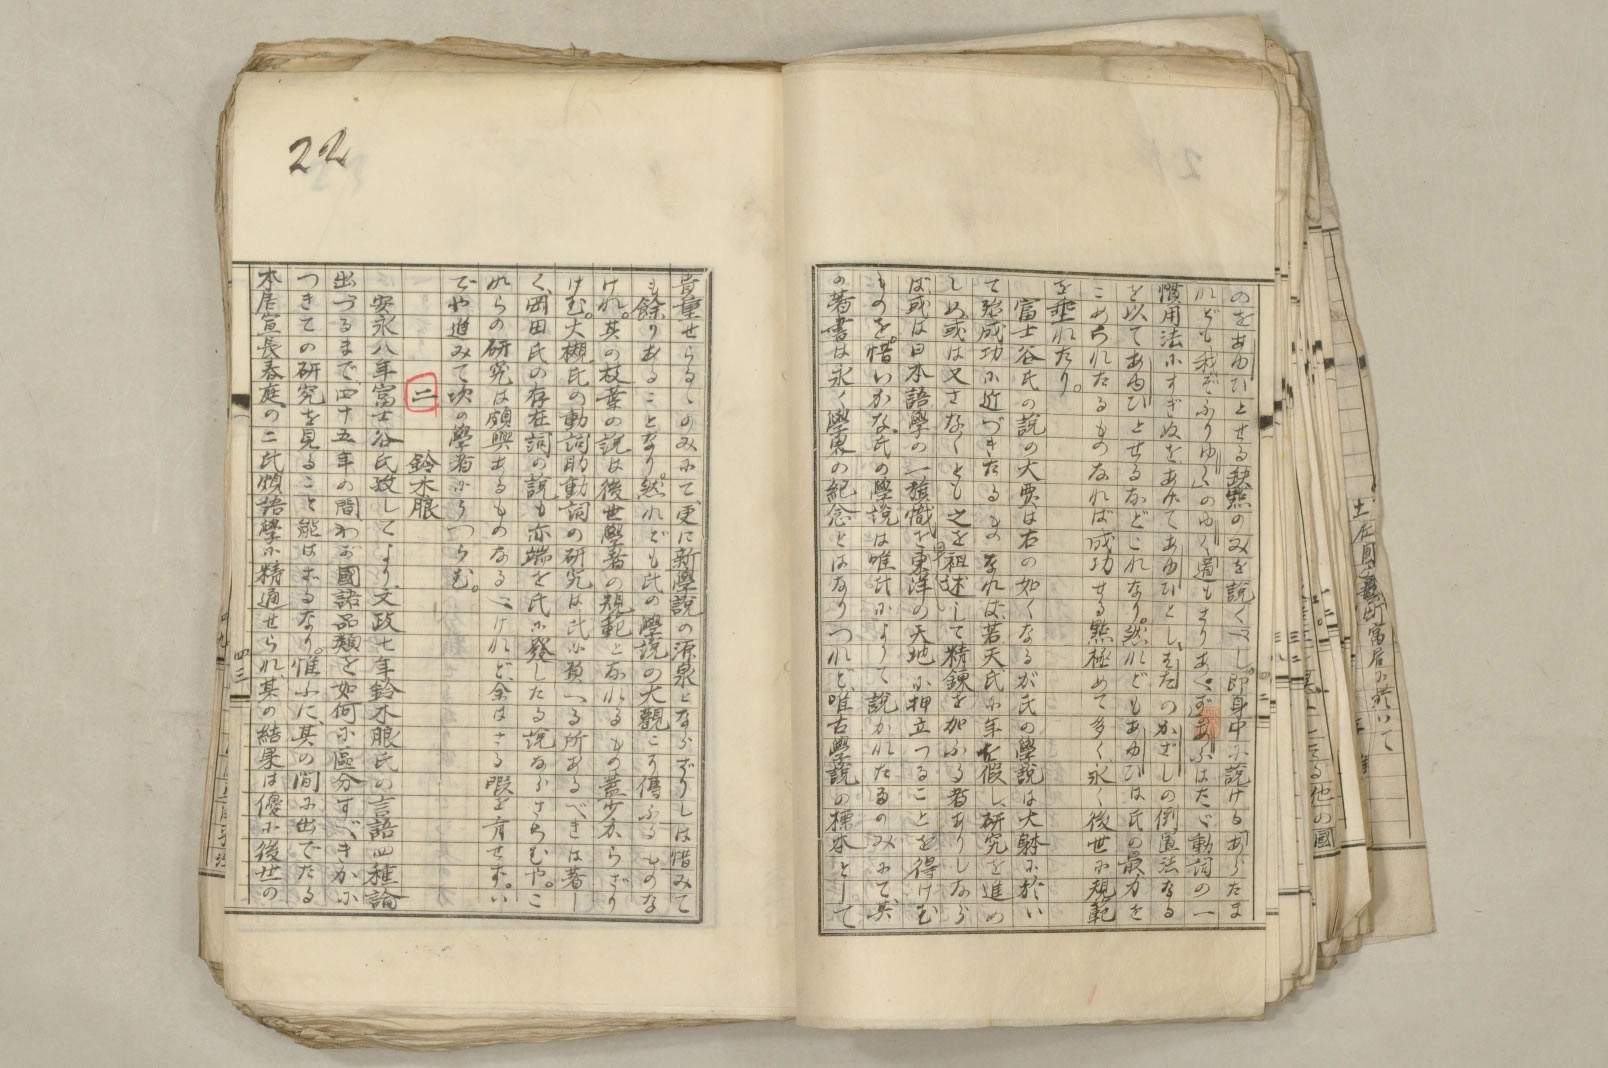 のをあゆひとせる缺點のみを説くべし。即身中に説けるあらたま
れども我ぞふりゆくのゆく道もまりあへずあふはたゞ動詞の一
慣用法にすぎぬをあげてあゆひとし、またのかざしの倒置法なる
を以てあゆひとせるなどこれなり。然れどもあゆひは氏の最力を
こめられたるものなれば成功せる點極めて多く永く後世に規範
を垂れたり。
富士谷氏の説の大要は右の如くなるが氏の學説は大躰に於い
て殆成功に近づきたるものなれば、若天氏に年を假し、研究を進め
しめ、或は又さなくとも之を祖述して精錬を加ふる者ありしなら
ば或は日本語學の一旗幟を東洋の天地に押立つることを得けむ
ものを。惜いかな、氏の學説は唯氏によりて説かれたるのみにて其
の著書は永く學界の紀念とはなりつれど、唯古學説の標本として
貴重せらるゝのみにて、更に新學説の源泉とならざりしは惜みて
も餘りあることなり。然れども氏の學説の大觀こそ傳ふるものな
けれ。其の枝葉の説は後世學者の規範となれるもの蓋少からざり
けむ。大槻氏の動詞助動詞の研究は氏に負へる所あるべきは著し
く、岡田氏の存在詞の説も亦端を氏に發したる説ならざらむや。こ
れらの研究は頗興あるものなるべけれど、余はさる暇を有せず。い
でや進みて次の學者にうつらむ。
二 鈴木朖
安永八年富士谷氏歿してより、文政七年鈴木朖氏の言語四種論
出づるまで、四十五年の間わが國語品類を如何に區分すべきかに
つきての研究を見ること能はざるなり。惟ふに、其の間に出でたる
本居宣長春庭の二氏頗語學に精通せられ、其の結果は優に後世の
22
四三